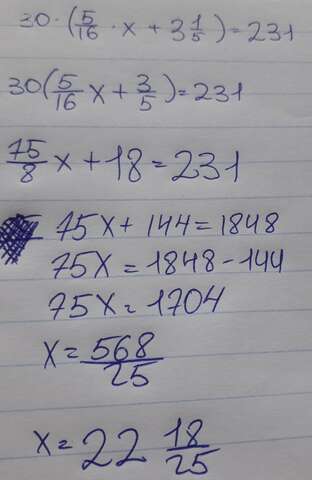 30 · (5/16 · x + 3 1/5) = 231
30(5/16 x + 3/5) = 231
75/8 x + 18 = 231
75x + 144 = 1848
75x = 1848 - 144
75x = 1704
x = 568/25
x = 22 18/25